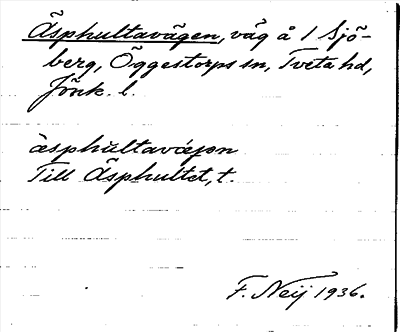 Äsphultavägen, väg å 1 Sjö-
berg, Öggestorps sn, Tveta hd,
Jönk. l.
äsphŭltavág̣ən
Till Äsphultet, t.
F. Neij 1936.